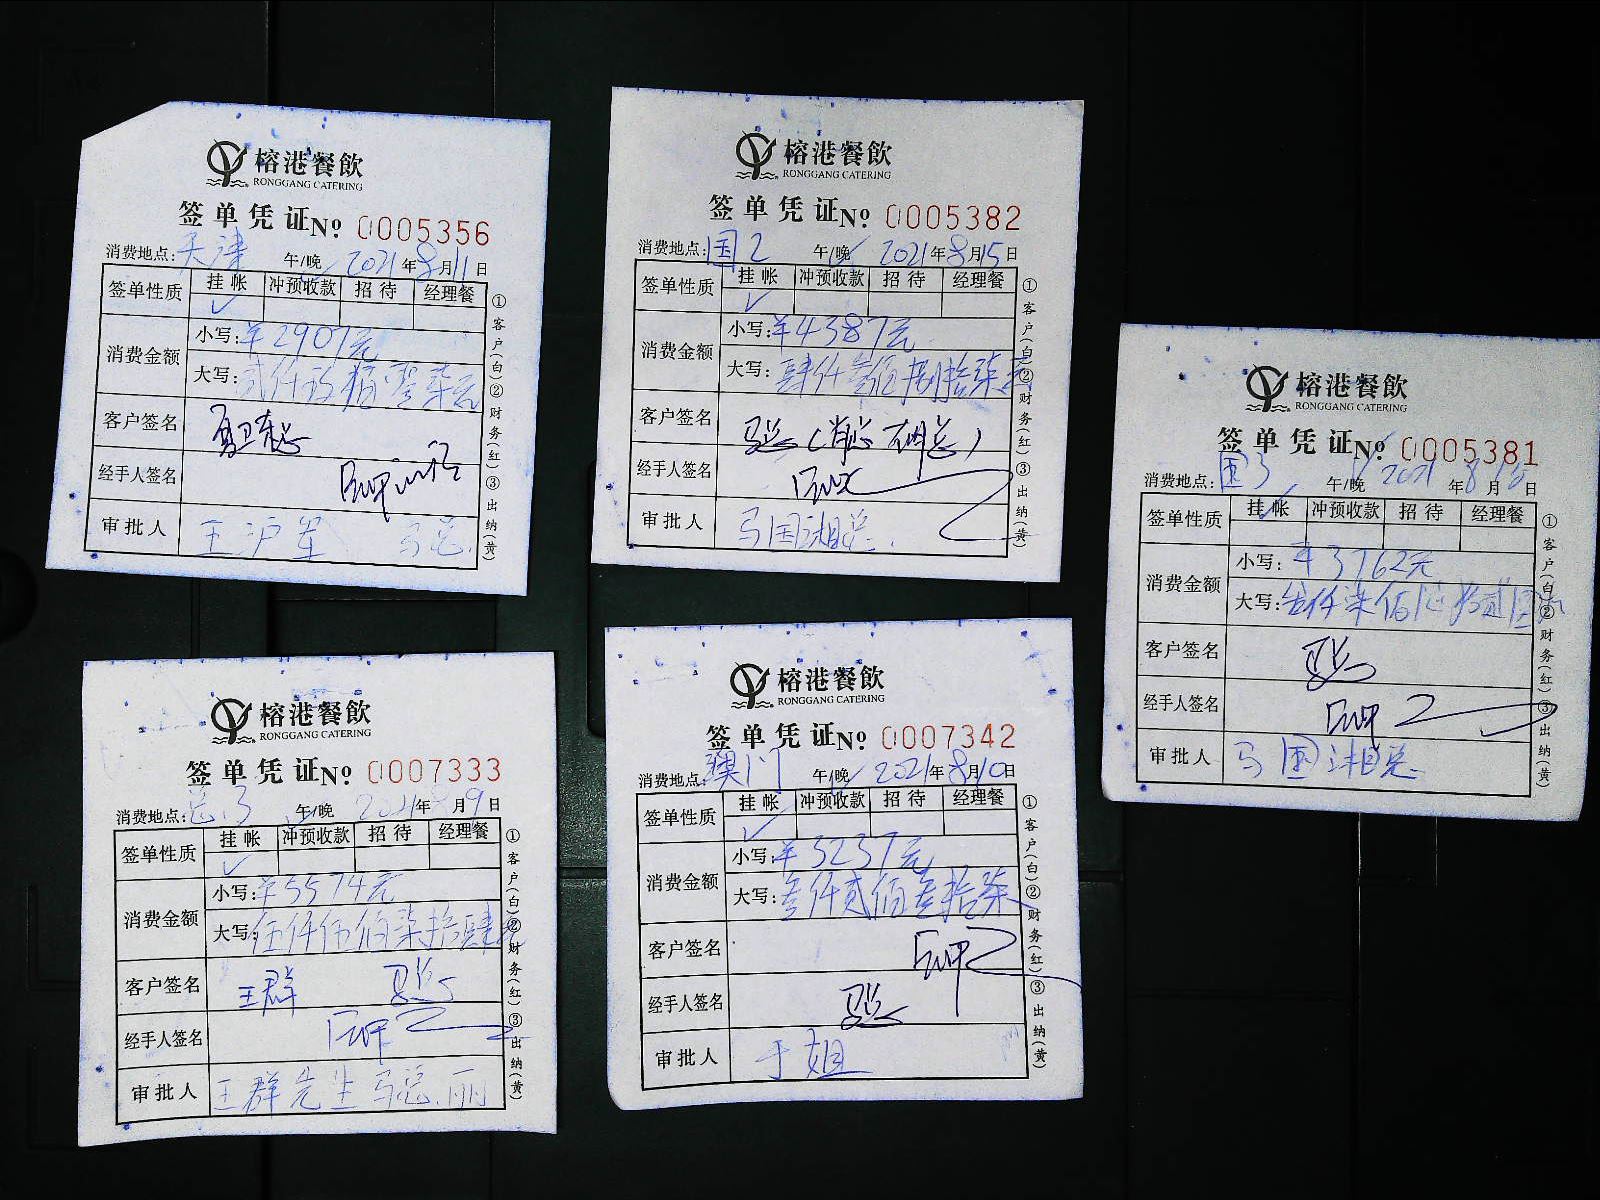 榕港餐飲
RONGGANG CATERING
签单凭证 No 0005356
消费地点：天津 午/晚 2021年8月11日
签单性质 挂帐 冲预收款 招待 经理餐
✓
消费金额 小写：¥2907元
大写：贰仟玖佰零柒元
客户签名
经手人签名
审批人 王沪军 马总
①客户(白)②财务(红)③出纳(黄)
榕港餐飲
RONGGANG CATERING
签单凭证 No 0005382
消费地点：国2 午/晚 2021年8月15日
签单性质 挂帐 冲预收款 招待 经理餐
✓
消费金额 小写：¥4387元
大写：肆仟叁佰捌拾柒元
客户签名 马总(肖总 总)
经手人签名
审批人 马国湘总
①客户(白)②财务(红)③出纳(黄)
榕港餐飲
RONGGANG CATERING
签单凭证 No 0005381
消费地点：国3 午/晚 2021年8月15日
签单性质 挂帐 冲预收款 招待 经理餐
✓
消费金额 小写：¥3762元
大写：叁仟柒佰陆拾贰元
客户签名 马总
经手人签名
审批人 马国湘总
①客户(白)②财务(红)③出纳(黄)
榕港餐飲
RONGGANG CATERING
签单凭证 No 0007333
消费地点：总3 午/晚 2021年8月9日
签单性质 挂帐 冲预收款 招待 经理餐
✓
消费金额 小写：¥5574元
大写：伍仟伍佰柒拾肆元
客户签名 王群 马总
经手人签名
审批人 王群先生 马总.丽
①客户(白)②财务(红)③出纳(黄)
榕港餐飲
RONGGANG CATERING
签单凭证 No 0007342
消费地点：澳门 午/晚 2021年8月10日
签单性质 挂帐 冲预收款 招待 经理餐
✓
消费金额 小写：¥3237元
大写：叁仟贰佰叁拾柒
客户签名
经手人签名 马总
审批人 于姐
①客户(白)②财务(红)③出纳(黄)